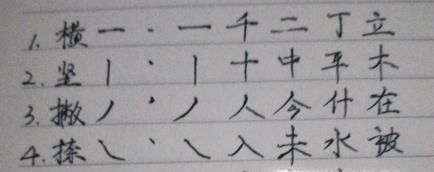 1. 横 一 丶 一 千 二 丁 立
2. 坚 丨 丶 丨 十 中 平 木
3. 撇 丿 丶 丿 人 今 什 在
4. 捺 ㇏ 丶 ㇏ 入 未 水 被